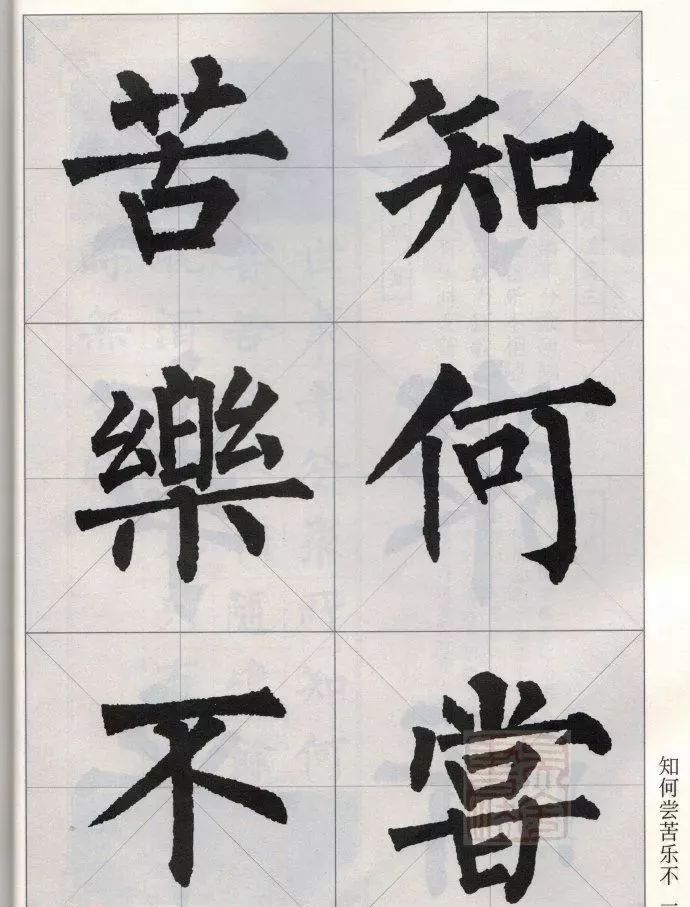 知何甞
苦樂不
知何尝苦乐不 一